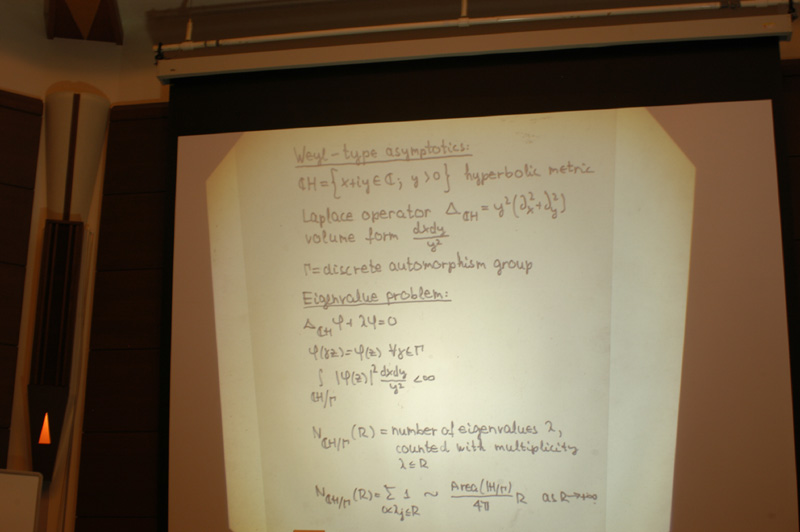 Weyl-type asymptotics:
ℂH={x+iy∈ℂ; y>0} hyperbolic metric
Laplace operator Δ_ℂH = y²(∂x²+∂y²)
volume form dxdy/y²
Γ=discrete automorphism group
Eigenvalue problem:
Δ_ℂH φ+λφ=0
φ(γz)=φ(z) ∀γ∈Γ
∫_ℂH/Γ |φ(z)|² dxdy/y² <∞
N_ℂH/Γ(R)=number of eigenvalues λ,
counted with multiplicity
λ≤R
N_ℂH/Γ(R)=∑_0<λj≤R 1 ~ Area(H/Γ)/4π R as R→+∞